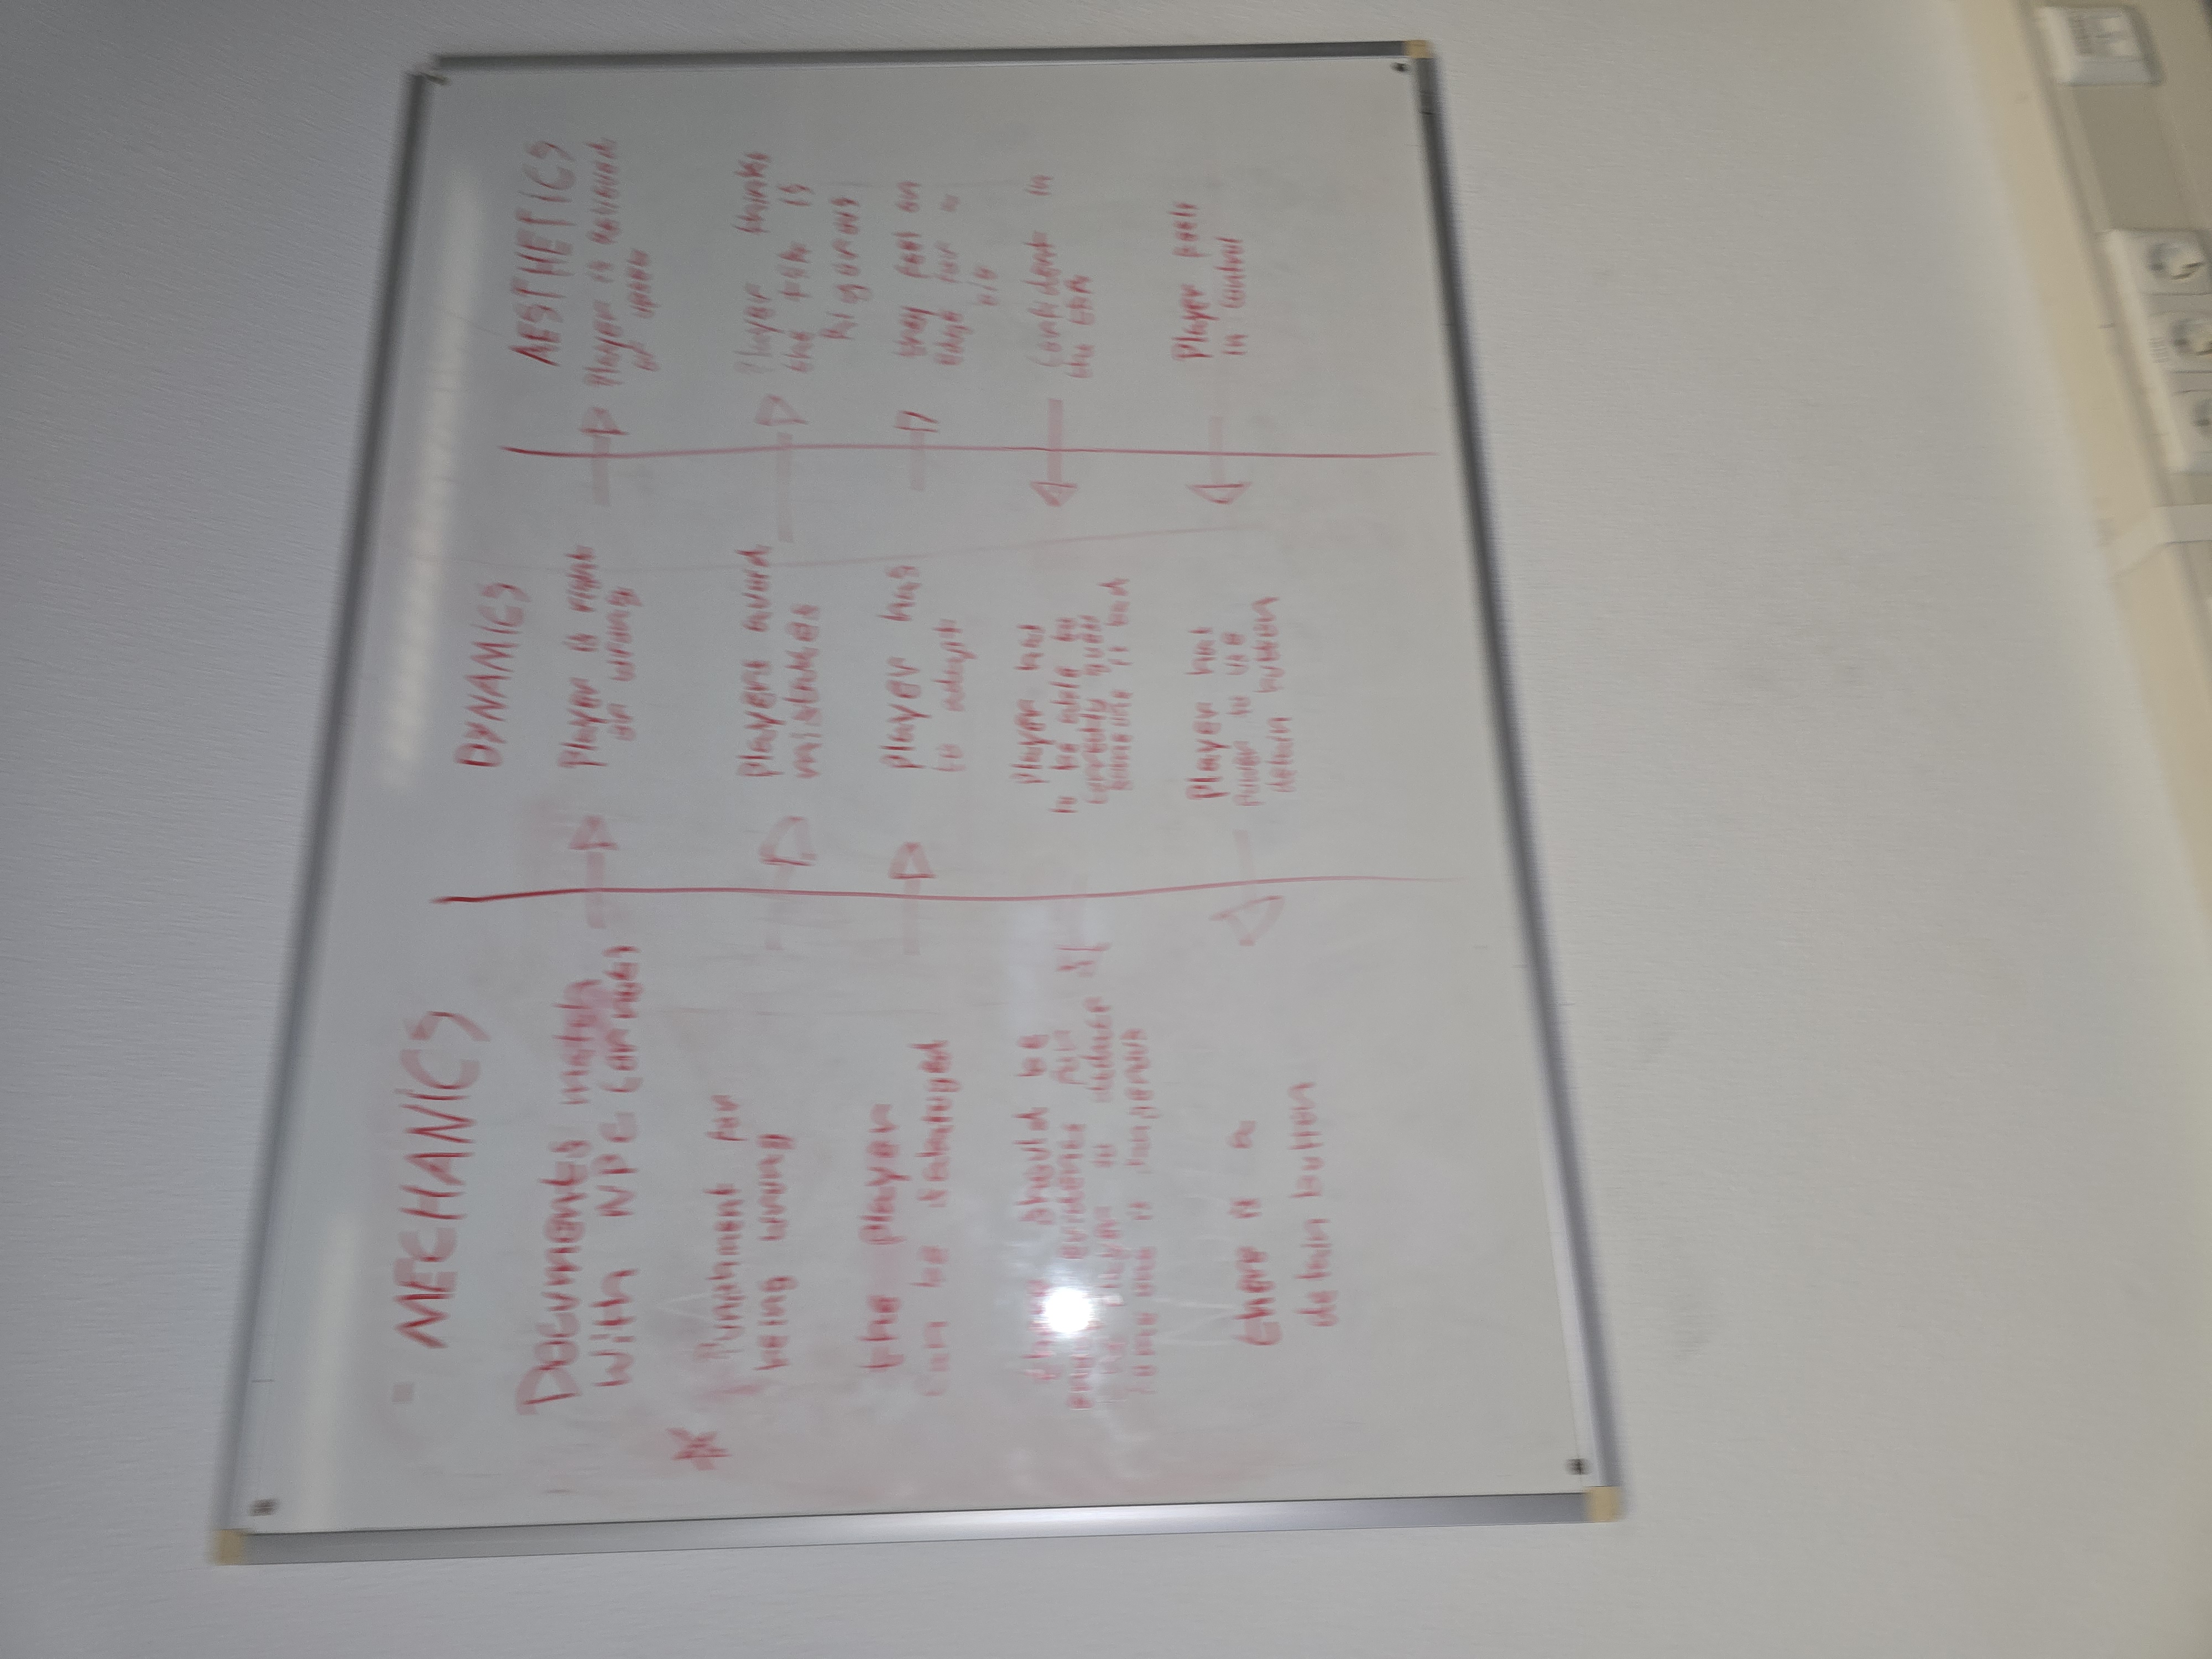 MECHANICS
Documents match
with NPC (or not)
* Punishment for
being wrong
the player
can be sabotaged
there should be
enough evidence for
the player to deduce
someone is dangerous
there is a
detain button
DYNAMICS
Player is right
or wrong
Players avoid
mistakes
player has
to adapt
Player has
to be able to
correctly guess
someone is bad
Player has
power to use
detain button
AESTHETICS
Player is relieved
or upset
Player thinks
the is
Rigorous
they feel on
edge for a
bit
Confident in
the
Player feels
in control